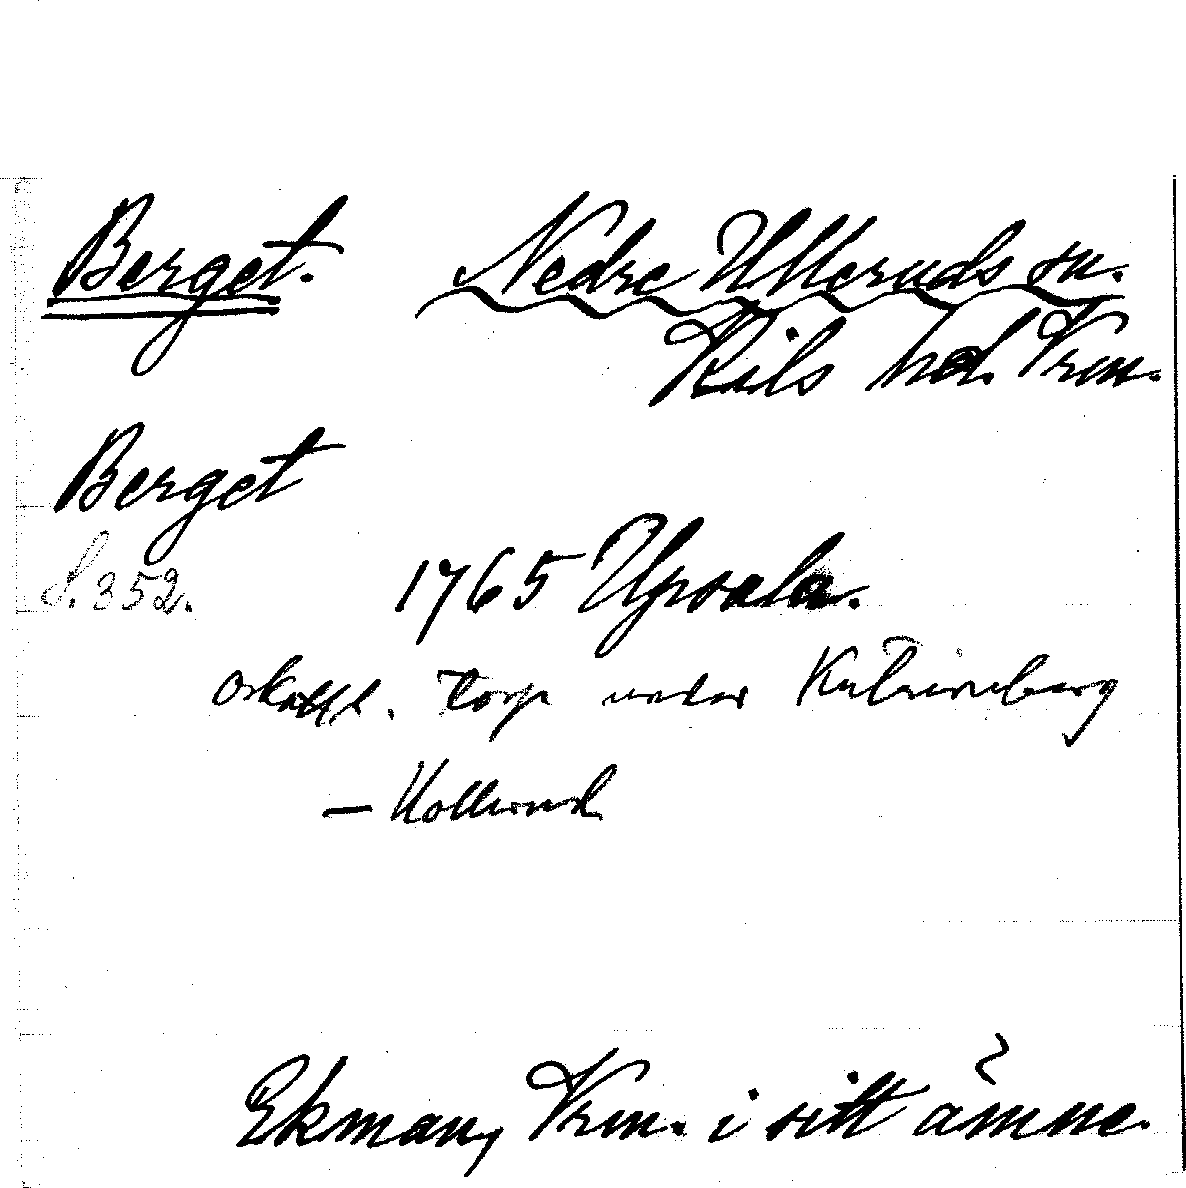 Berget. Nedre Ulleruds sn.
Kils hd. Vrm.
Berget
S. 352. 1765 Upsala.
oskattl. torp under Katrineberg
— Kollerud
Ekman, Vrm. i sitt ämne.